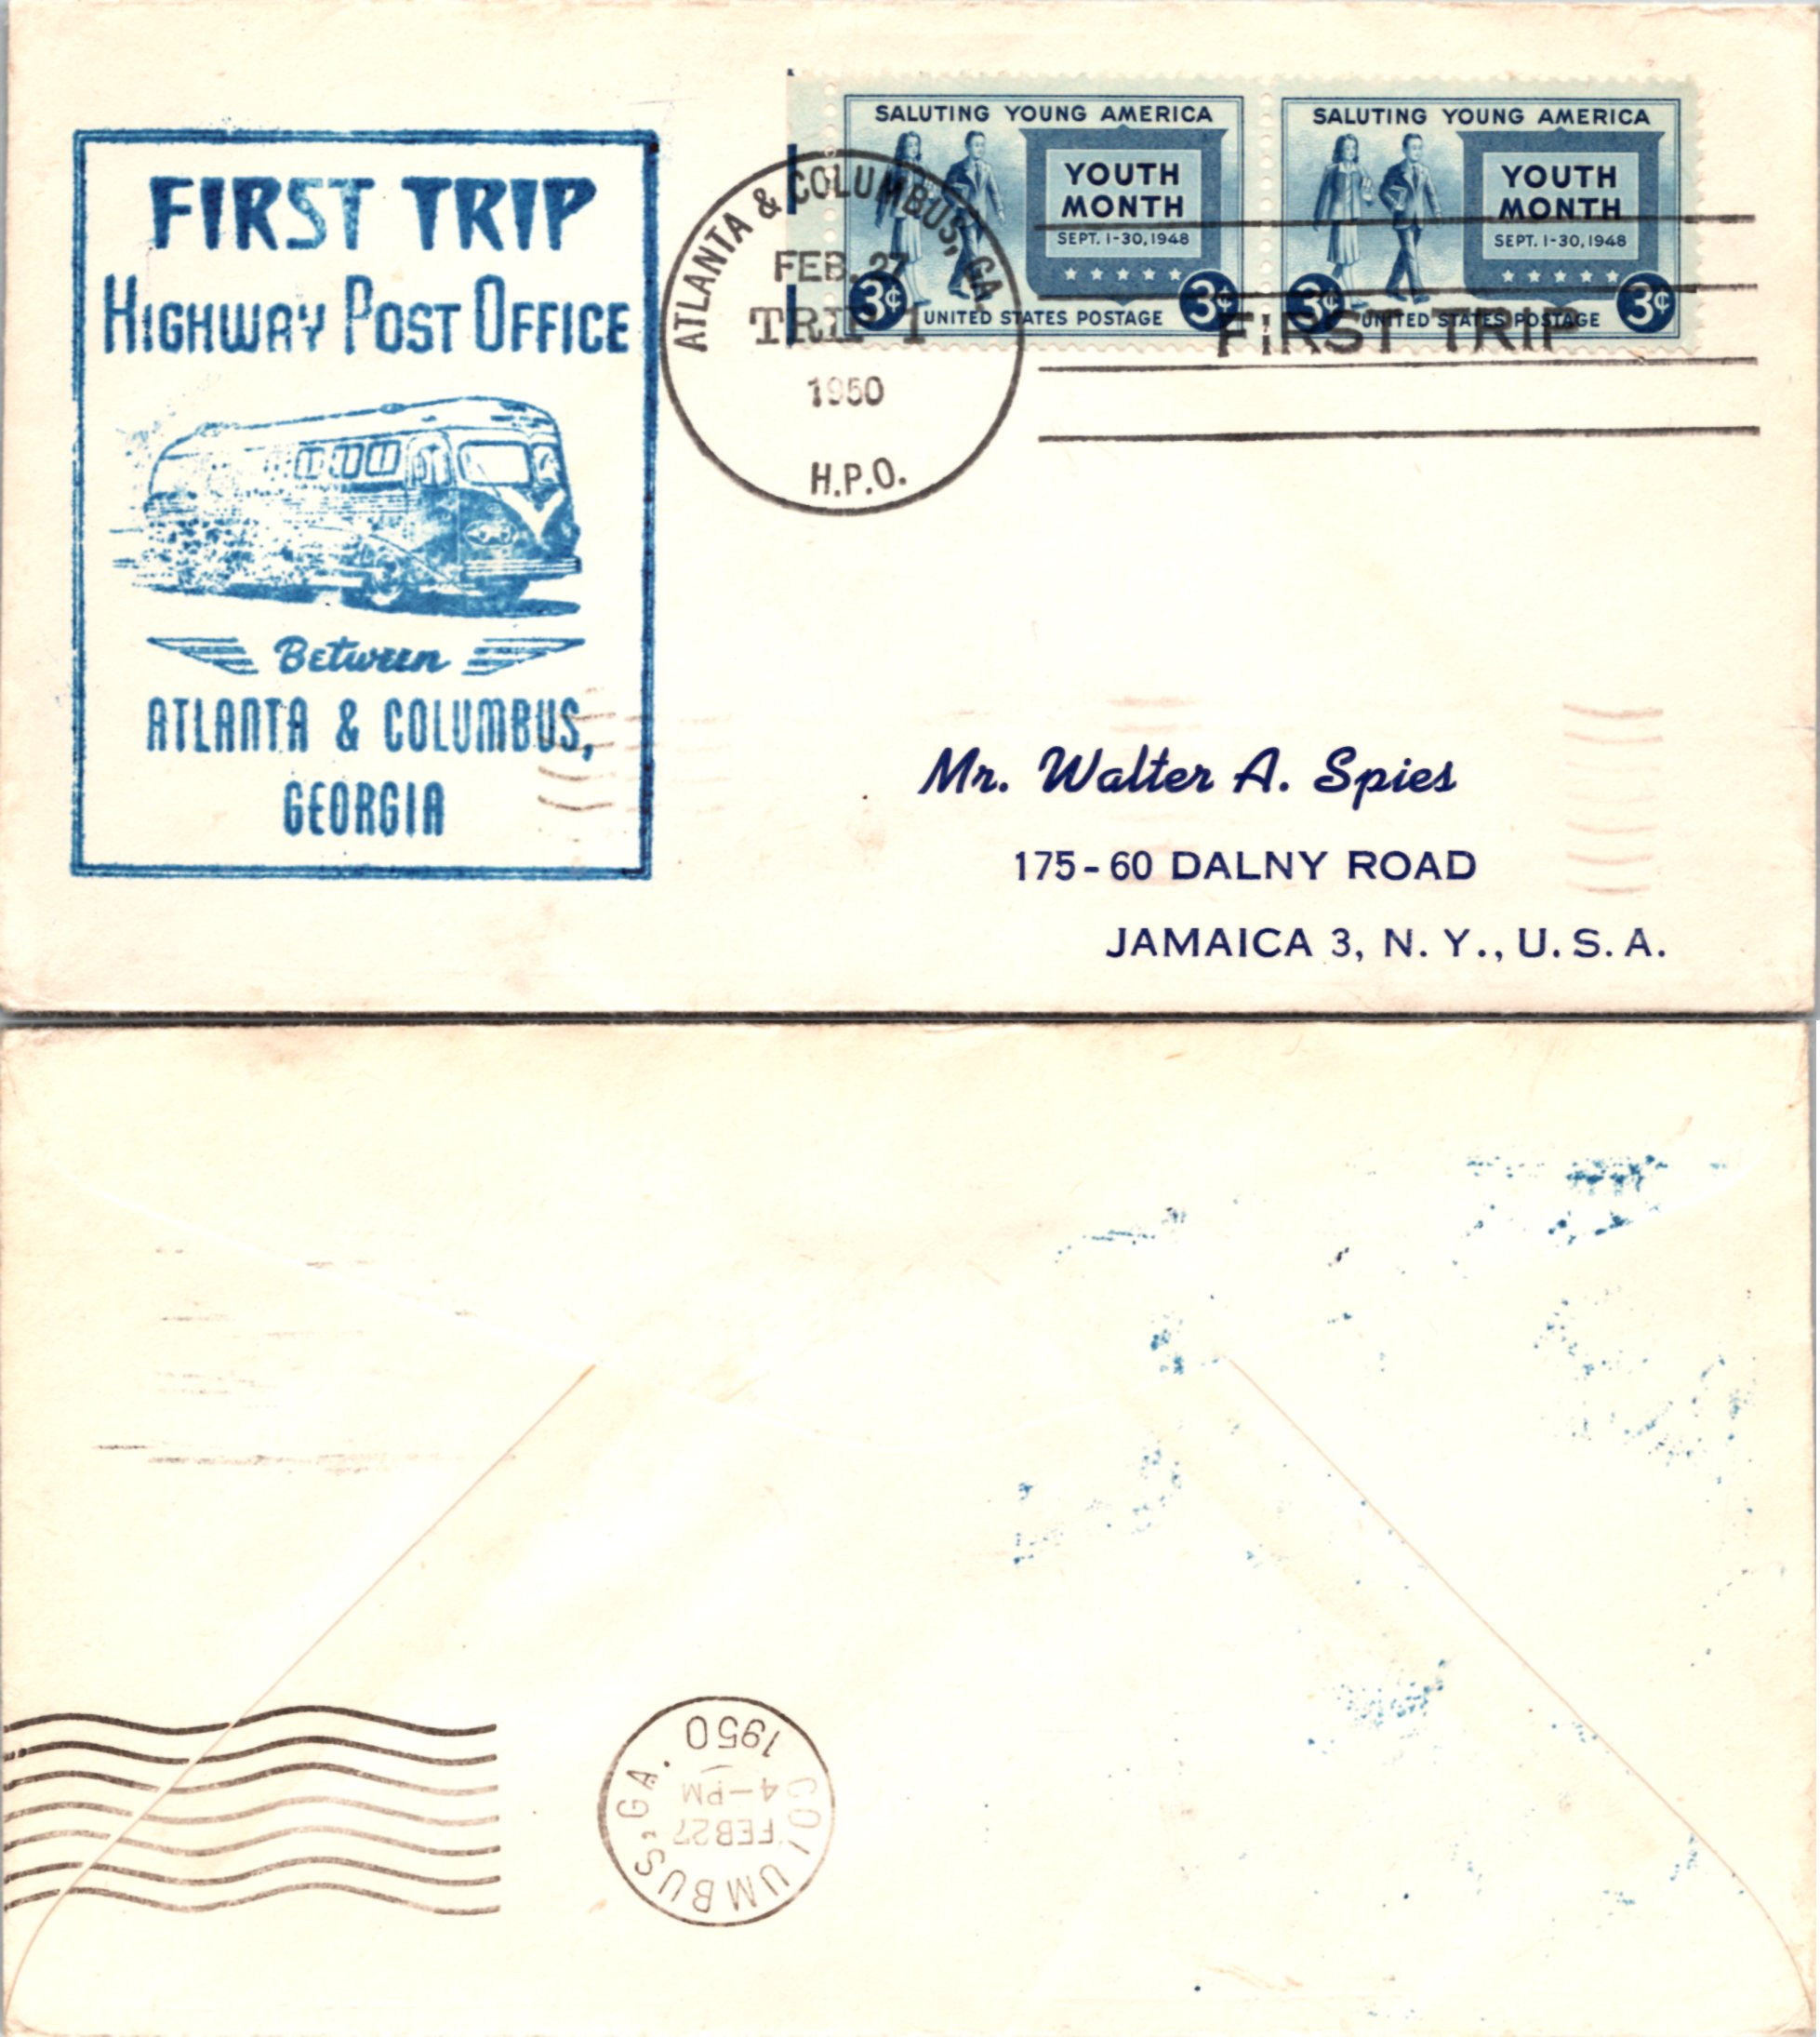 FIRST TRIP
HIGHWAY POST OFFICE
Between
ATLANTA & COLUMBUS,
GEORGIA
ATLANTA & COLUMBUS, GA
FEB. 27
TRIP 1
1950
H.P.O.
SALUTING YOUNG AMERICA
YOUTH
MONTH
SEPT. 1-30, 1948
3¢ 3¢
UNITED STATES POSTAGE
SALUTING YOUNG AMERICA
YOUTH
MONTH
SEPT. 1-30, 1948
3¢ 3¢
UNITED STATES POSTAGE
FIRST TRIP
Mr. Walter A. Spies
175-60 DALNY ROAD
JAMAICA 3, N. Y., U. S. A.
COLUMBUS, GA.
FEB 27
4-PM
1950